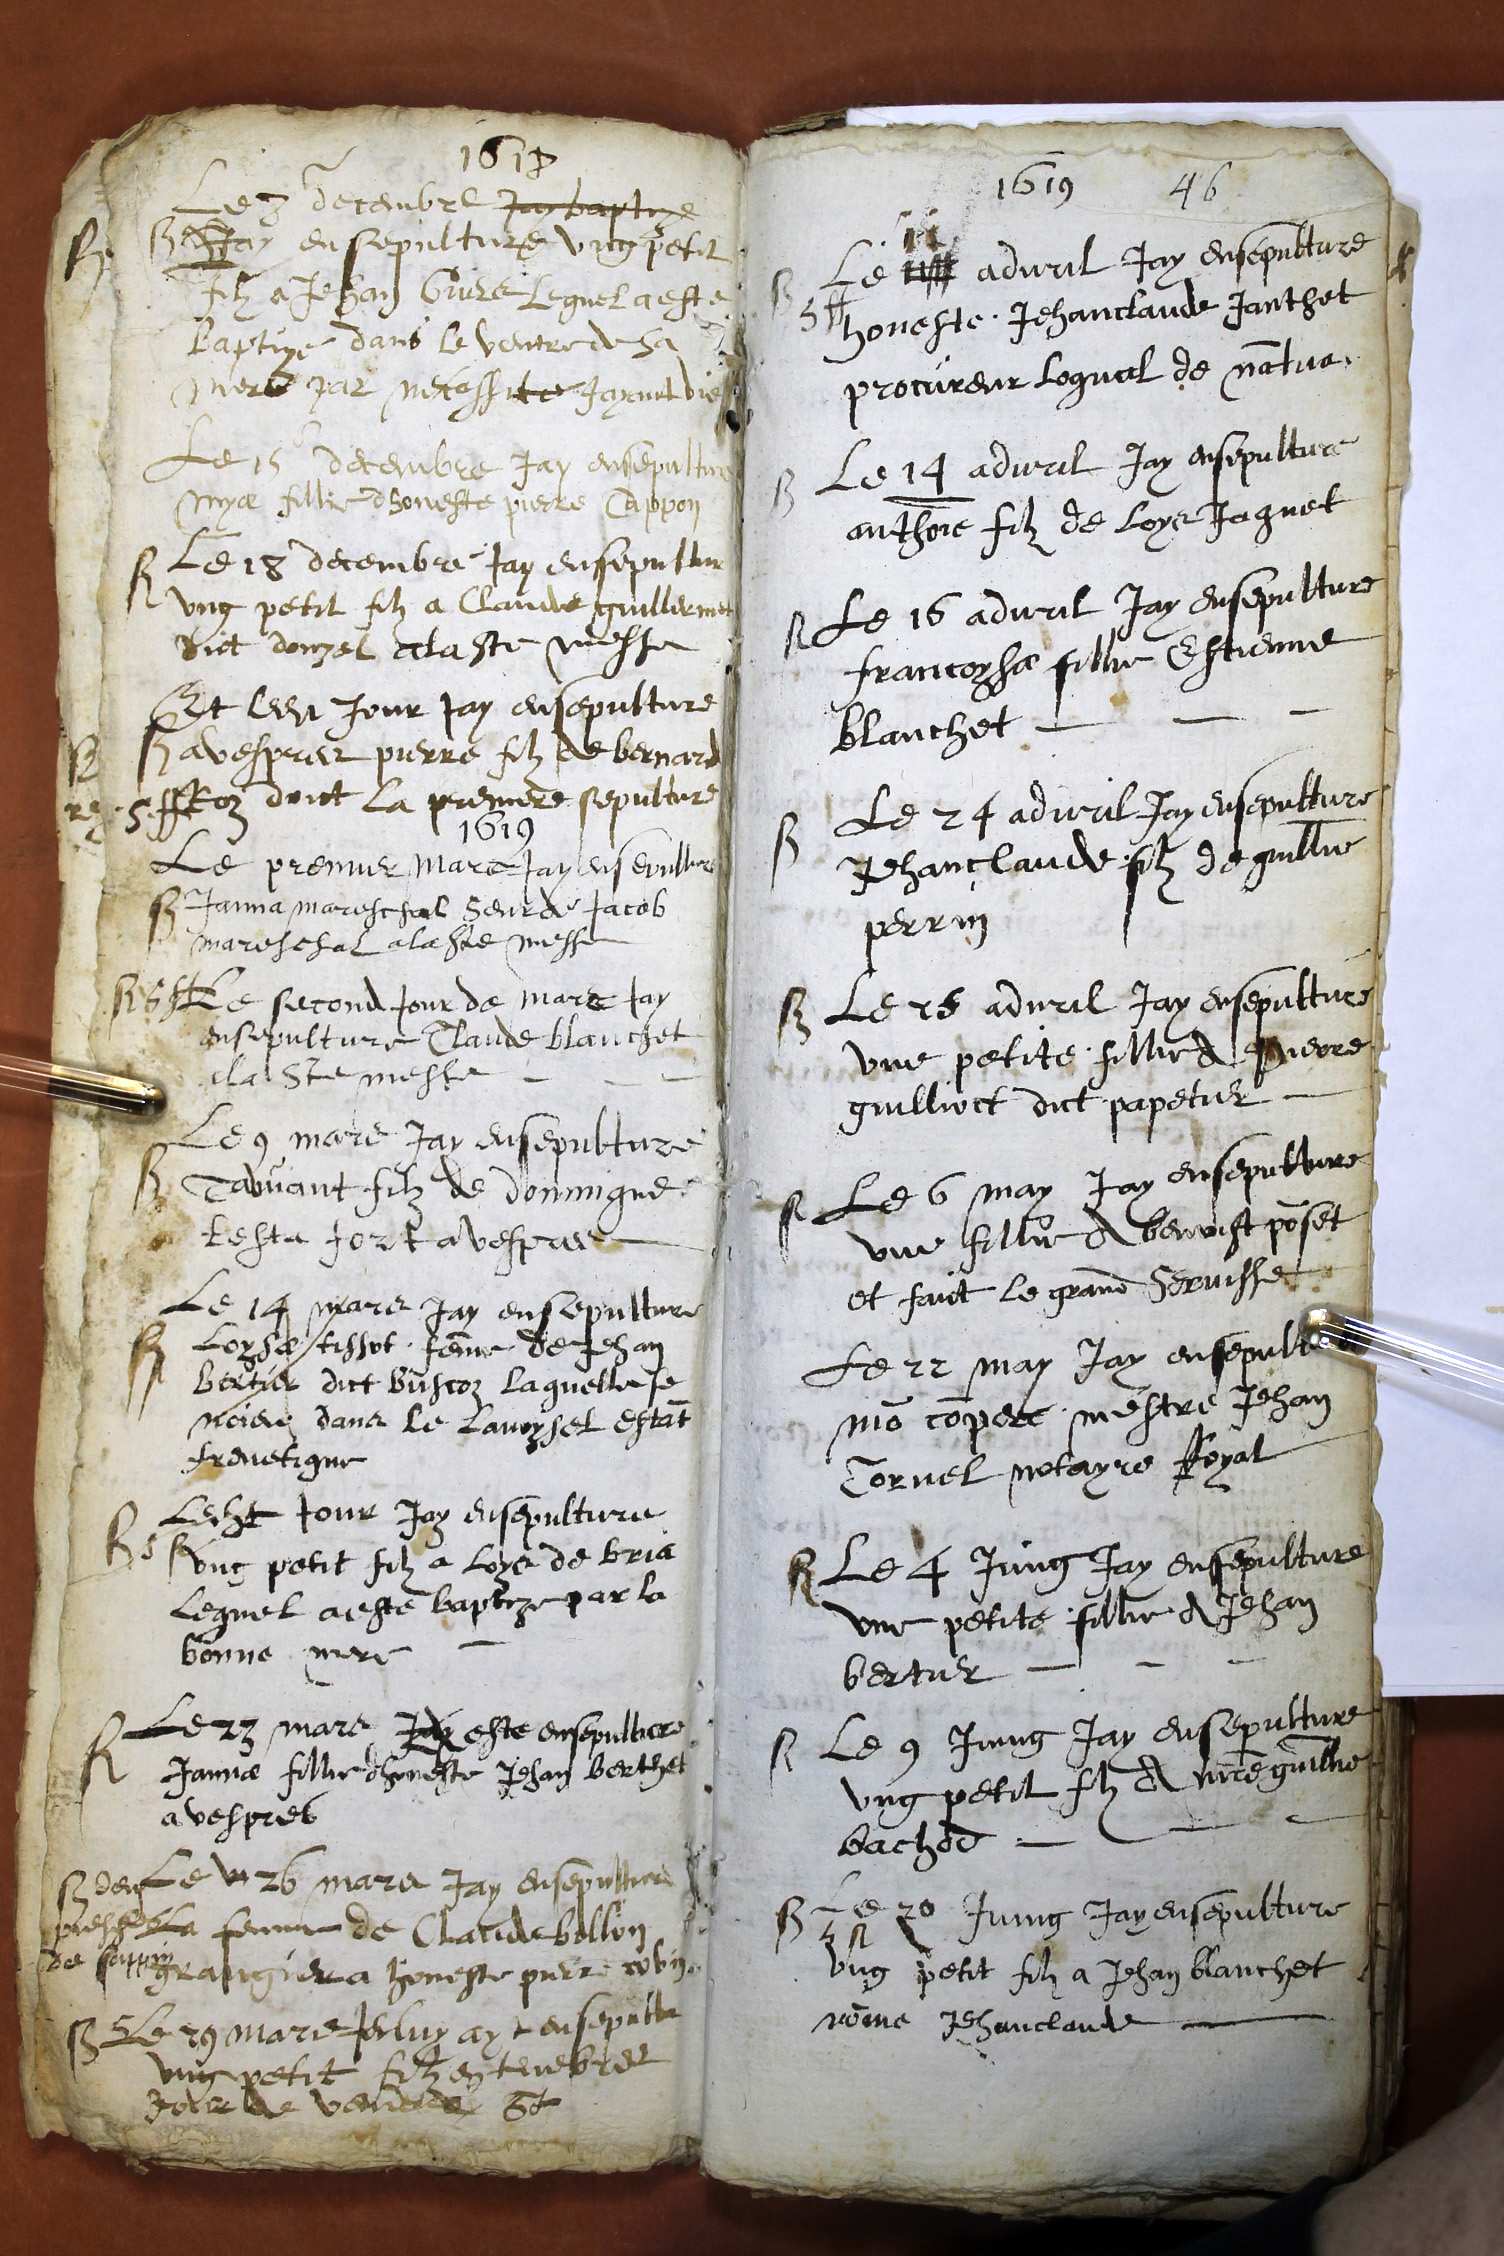 1618
Le 3 decembre Jay baptize
Jay ensepulture vng petit
filz a Jehan lequel a este
baptize dans le ventre de sa
mere par necessite
Le 15 decembre Jay ensepulture
mya fillie dhoneste pierre Cappon
Le 18 decembre Jay ensepultur
vng petit filz a Claude guillermet
dict donzel a la ste messe
Et led Jour Jay ensepulture
a vespres pierre filz de bernard
doict la premiere sepulture
1619
Le premier Mars Jay ensepulture
Janna mareschal seur de Jacob
mareschal a la ste messe
Le second Jour de mars Jay
ensepulture Claude blanchet
a la Ste messe
Le 9 mars Jay ensepulture
filz de dominique
teste fort a vespres
Le 14 mars Jay ensepulture
Loysa tissot feme de Jehan
bertier dict buscoz laquelle se
dans le estat
frenetique
Ledit Jour Jay ensepulture
vng petit filz a Loys de bria
lequel a este baptize par la
bonne mere
Le 23 mars Jay este ensepulture
Janna fillie dhoneste Jehan berthet
a vespres
Le 26 mars Jay ensepulture
La femme de Claude bollon
grangier a honeste pierre
Le 29 mars Jay ensepultu
vng petit filz en tenebres
Jour de St
1619 46
Le 11 apuril Jay ensepulture
honeste Jehanclaude Janthet
procureur de nantua
Le 14 apuril Jay ensepulture
anthoie filz de Loys Jaquet
Le 16 apuril Jay ensepulture
francoysa fillie Estienne
blanchet
Le 24 apuril Jay ensepulture
Jehanclaude filz de guillie
perrin
Le 25 apuril Jay ensepulture
vne petite fillie A pierre
guillioct dict papetier
Le 6 may Jay ensepulture
vne fillie A benoist poset
et faict le grand Seruisse
Le 22 may Jay ensepult
mo copere mestre Jehan
Tornel notayre Royal
Le 4 Juing Jay ensepulture
vne petite fillie A Jehan
bertier
Le 9 Juing Jay ensepulture
vng petit filz A guillie
bachod
Le 20 Juing Jay ensepulture
vng petit filz a Jehan blanchet
nome Jehanclaude